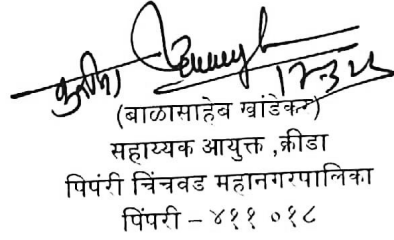 17-3-25
(बाळासाहेब खांडेकर)
सहाय्यक आयुक्त ,क्रीडा
पिपंरी चिंचवड महानगरपालिका
पिंपरी – ४११ ०१८